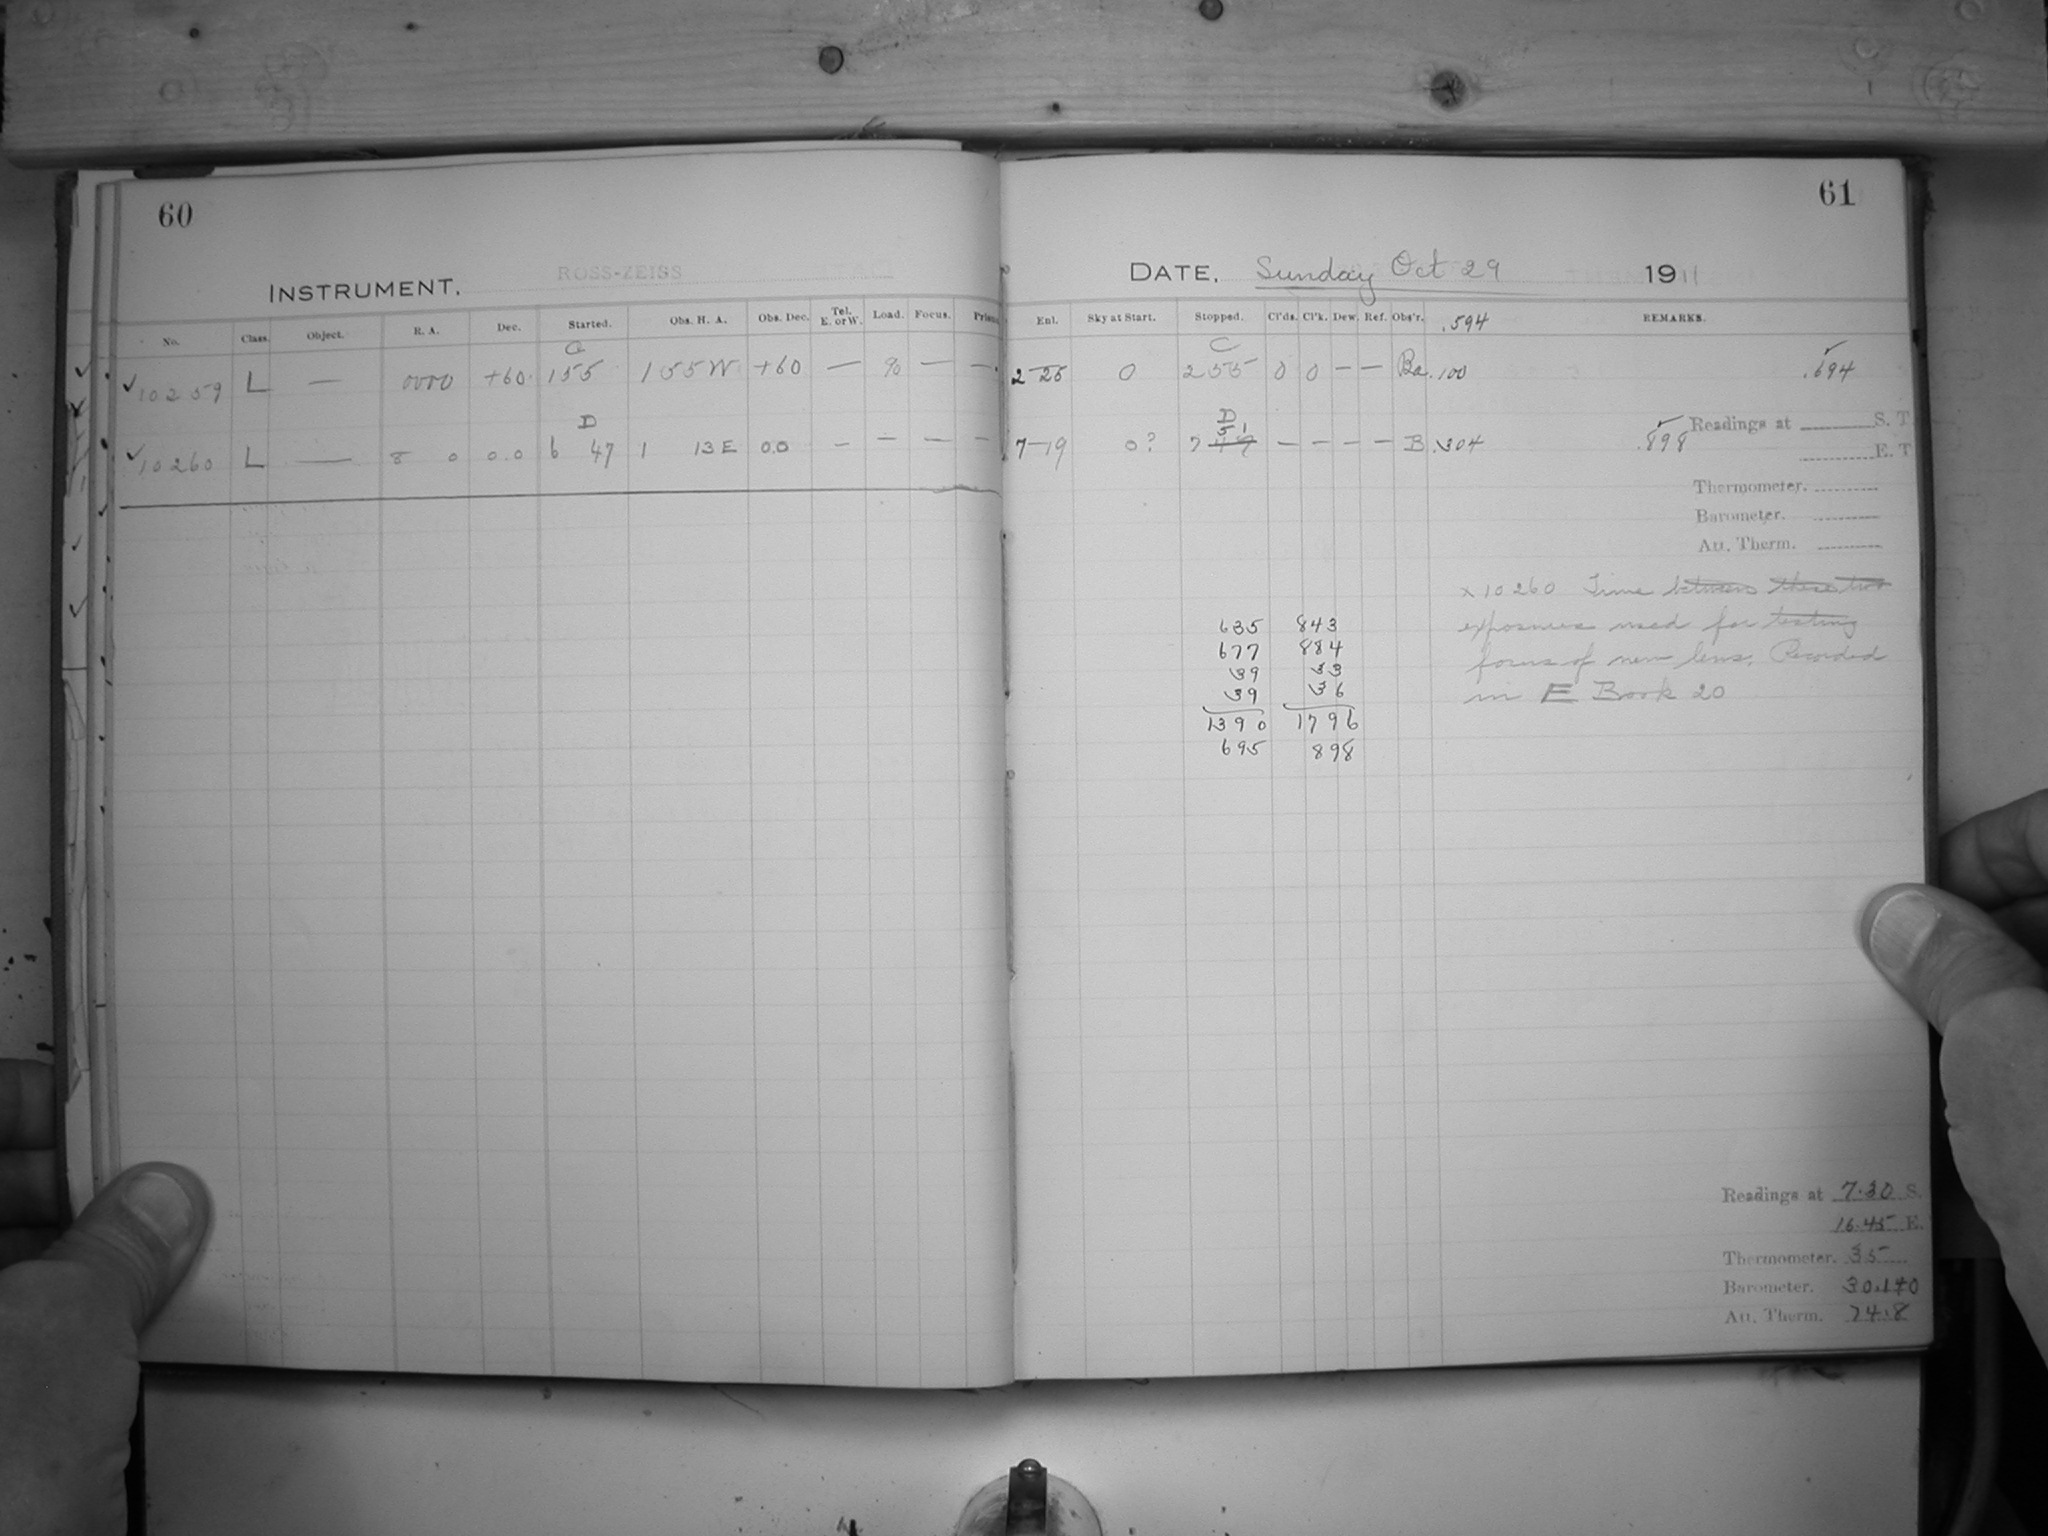 60
INSTRUMENT. ROSS-ZEISS
No. Class. Object. R. A. Dec. Started. Obs. H. A. Obs. Dec. Tel. E. or W. Load. Focus. Prism
C
✓10259 L — 0000 +60. 155 155W +60 — % — —.
D
✓10260 L — 8 0 0.0 6 47 1 13E 0.0 — — — —
61
DATE. Sunday Oct 29 1911
Enl. Sky at Start. Stopped. Cl'ds. Cl'k. Dew. Ref. Obs'r. .594 REMARKS.
C
2-25 0 255 0 0 — — Ba .100 .694
D
51
7-19 0? 7 — — — — B .304 .898
Readings at S. T
E. T
Thermometer.
Barometer.
Att. Therm.
x 10260 Time between these two
exposures used for testing
focus of new lens. Recorded
in E Book 20
635 843
677 884
39 33
39 36
1390 1796
695 898
Readings at 7.30 S.
16.45 E.
Thermometer. 35
Barometer. 30.140
Att. Therm. 74.8